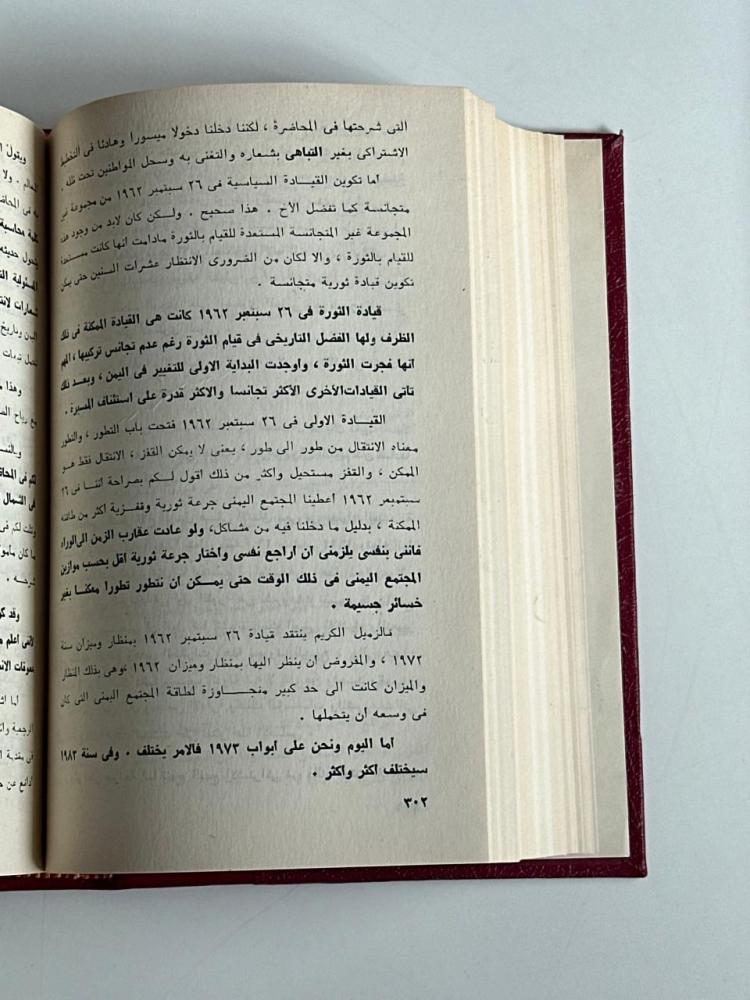 التى شرحتها فى المحاضرة ، لكننا دخلنا دخولا ميسورا وهادئا فى التخطيط
الاشتراكى بغير التباهى بشعاره والتغنى به وسحل المواطنين تحت ظله .
أما تكوين القيـادة السياسية فى ٢٦ سبتمبر ١٩٦٢ من مجموعة غير
متجانسة كما تفضل الأخ . هذا صحيح . ولـكن كان لابد من وجود هذه
المجموعة غير المتجانسة المستعدة للقيام بالثورة مادامت أنها كانت مستعدة
للقيام بالثورة ، والا لكان من الضرورى الانتظار عشرات السنين حتى يمكن
تكوين قيادة ثورية متجانسة .
قيادة الثورة فى ٢٦ سبتمبر ١٩٦٢ كانت هى القيادة المكنة فى ذلك
الظرف ولها الفضل التاريخى فى قيام الثورة رغم عدم تجانس تركيبها ، المهم
انها فجرت الثورة ، واوجدت البداية الاولى للتغيير فى اليمن ، وبعـد ذلك
تأتى القيادات الأخرى الأكثر تجانسا والاكثر قدرة على استئناف المسيرة .
القيـــادة الاولى فى ٢٦ سبتمبر ١٩٦٢ فتحت باب التطور ، والتطور
معناه الانتقال من طور الى طور ، يعنى لا يمكن القفز ، الانتقال فقط هـو
الممكن ، والقفز مستحيل واكثر من ذلك اقول لـكم بصراحة أننـا فى ٢٦
سبتمبعر ١٩٦٢ أعطينا المجتمع اليمنى جرعة ثورية وقفـزية أكثر من طاقته
الممكنة ، بدليل ما دخلنا فيه من مشاكل، ولو عادت عقارب الزمن الى الوراء
فاننى بنفسى يلزمنى ان اراجع نفسى واختار جرعة ثورية أقل بحسب موازين
المجتمع اليمنى فى ذلك الوقت حتى يمـــكن أن نتطور تطورا ممكنـا بغير
خسائر جسيمة .
فالزميل الكريم ينتقد قيادة ٢٦ سبتمبر ١٩٦٢ بمنظار وميزان سنة
١٩٧٢ ، والمفروض أن ينظر اليها بمنظار وميزان ١٩٦٢ ؛وهى بذلك المنظار
والميزان كانت الى حد كبير متجـــاوزة لطاقة المجتمع اليمنى التى كان
فى وسعه أن يتحملها .
أما اليوم ونحن على أبواب ١٩٧٣ فالامر يختلف . وفى سنة ١٩٨٣
سيختلف أكثر وأكثر .
٣٠٢